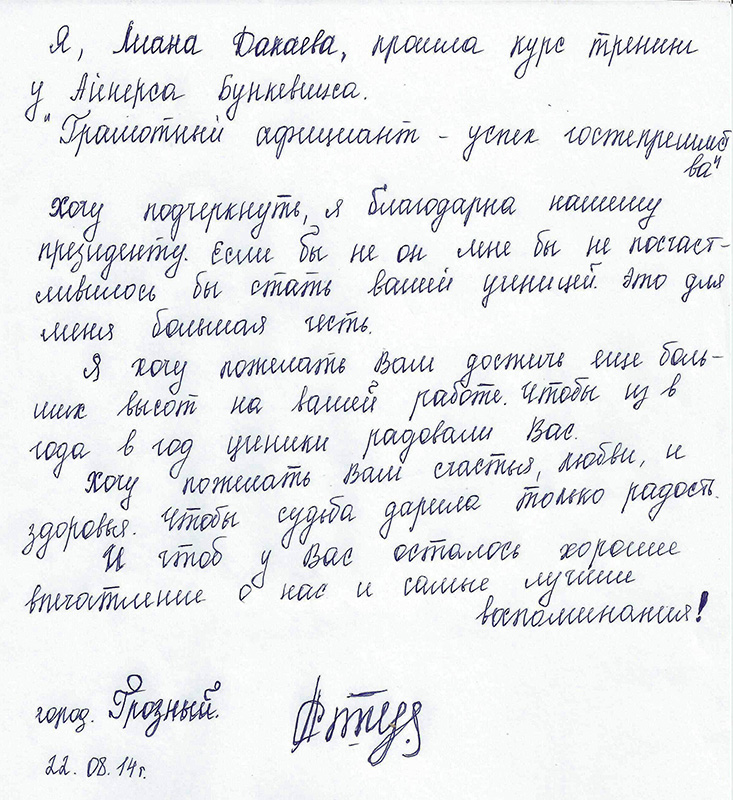 Я, Лиана Дакаева, прошла курс тренинг
у Айнерса Бункевича.
"Грамотный официант - успех гостепреимст
ва"
Хочу подчеркнуть, я благодарна нашему
президенту. Если бы не он мне бы не посчаст-
ливилось бы стать вашей ученицей. Это для
меня большая честь.
Я хочу пожелать Вам достичь еще боль-
ших высот на вашей работе. Чтобы из в
года в год ученики радовали Вас.
Хочу пожелать Вам счастья, любви, и
здоровья. Чтобы судьба дарила только радость.
И чтоб у Вас осталось хорошее
впечатление о нас и самые лучшие
воспоминания!
город. Грозный.
22. 08. 14г.